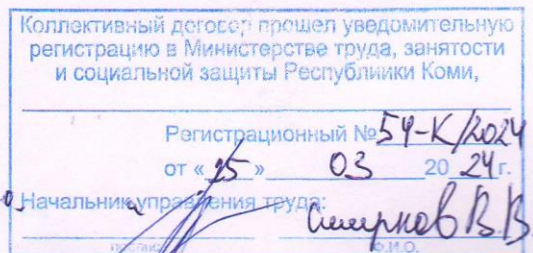 Коллективный договор прошел уведомительную
регистрацию в Министерстве труда, занятости
и социальной защиты Республики Коми,
Регистрационный № 54-К/2024
от « 25 » 03 20 24 г.
Начальник управления труда:
Смирнов В.В.
подпись Ф.И.О.